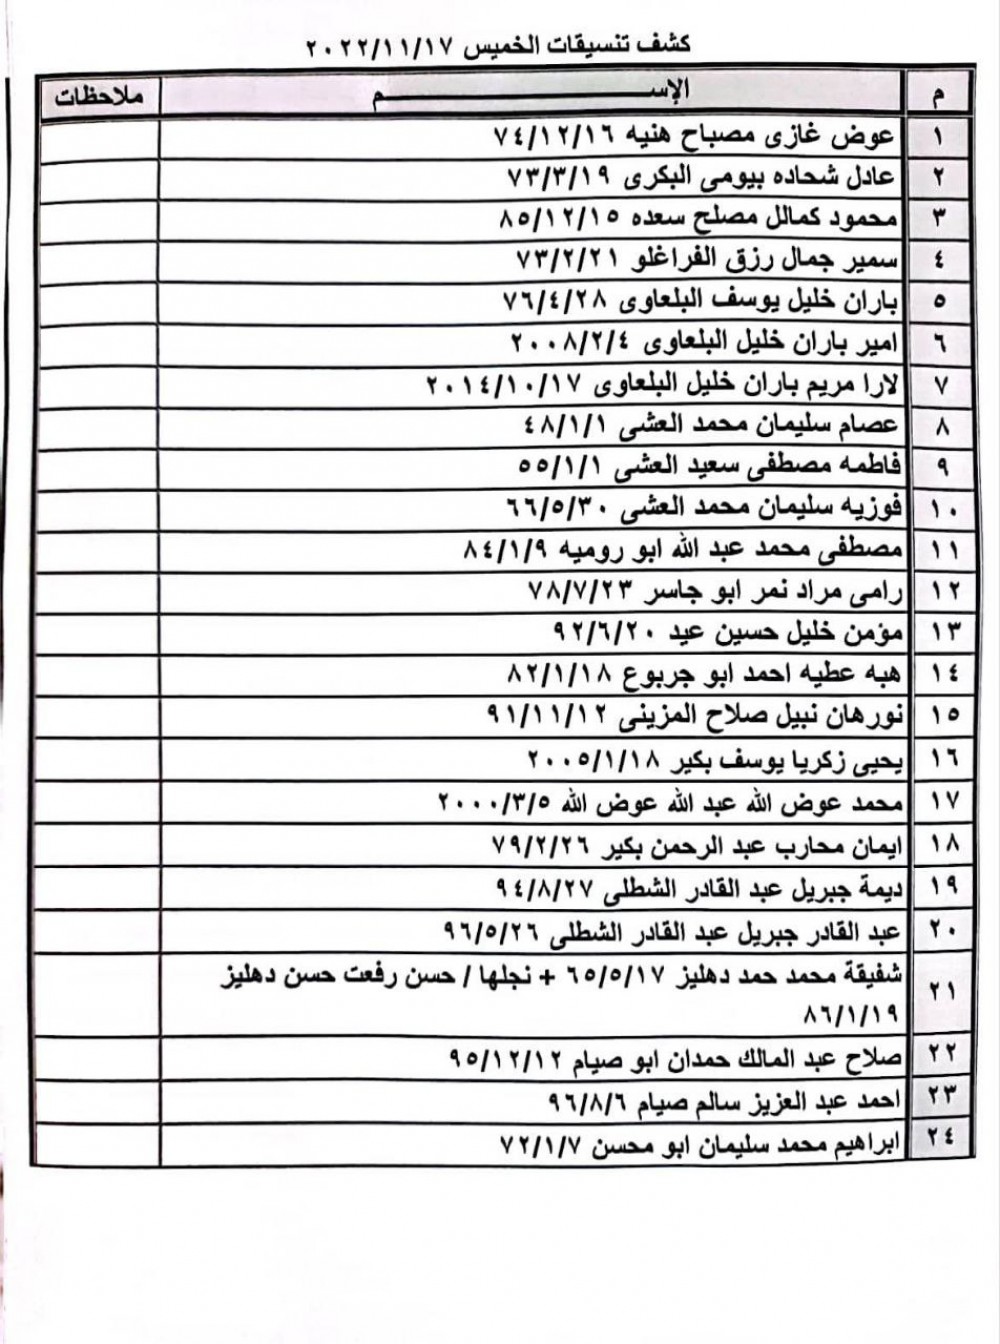 كشف تنسيقات الخميس ٢٠٢٢/١١/١٧
م الإســـــــــــــم ملاحظات
١ عوض غازى مصباح هنيه ٧٤/١٢/١٦
٢ عادل شحاده بيومى البكرى ٧٣/٣/١٩
٣ محمود كمالل مصلح سعده ٨٥/١٢/١٥
٤ سمير جمال رزق الفراغلو ٧٣/٢/٢١
٥ باران خليل يوسف البلعاوى ٧٦/٤/٢٨
٦ امير باران خليل البلعاوى ٢٠٠٨/٢/٤
٧ لارا مريم باران خليل البلعاوى ٢٠١٤/١٠/١٧
٨ عصام سليمان محمد العشى ٤٨/١/١
٩ فاطمه مصطفى سعيد العشى ٥٥/١/١
١٠ فوزيه سليمان محمد العشى ٦٦/٥/٣٠
١١ مصطفى محمد عبد الله ابو روميه ٨٤/١/٩
١٢ رامى مراد نمر ابو جاسر ٧٨/٧/٢٣
١٣ مؤمن خليل حسين عيد ٩٢/٦/٢٠
١٤ هبه عطيه احمد ابو جربوع ٨٢/١/١٨
١٥ نورهان نبيل صلاح المزينى ٩١/١١/١٢
١٦ يحيى زكريا يوسف بكير ٢٠٠٥/١/١٨
١٧ محمد عوض الله عبد الله عوض الله ٢٠٠٠/٣/٥
١٨ ايمان محارب عبد الرحمن بكير ٧٩/٢/٢٦
١٩ ديمة جبريل عبد القادر الشطلى ٩٤/٨/٢٧
٢٠ عبد القادر جبريل عبد القادر الشطلى ٩٦/٥/٢٦
٢١ شفيقة محمد حمد دهليز ٦٥/٥/١٧ + نجلها / حسن رفعت حسن دهليز
٨٦/١/١٩
٢٢ صلاح عبد المالك حمدان ابو صيام ٩٥/١٢/١٢
٢٣ احمد عبد العزيز سالم صيام ٩٦/٨/٦
٢٤ ابراهيم محمد سليمان ابو محسن ٧٢/١/٧